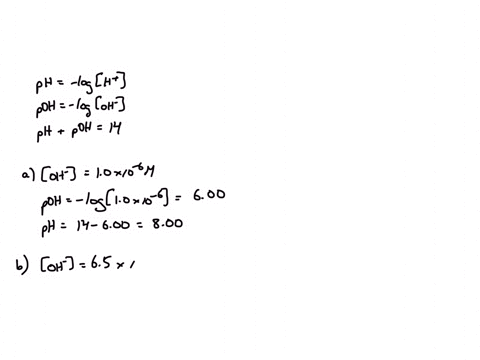 pH = -log[H⁺]
pOH = -log[OH⁻]
pH + pOH = 14
a) [OH⁻] = 1.0 × 10⁻⁶ M
pOH = -log[1.0 × 10⁻⁶] = 6.00
pH = 14 - 6.00 = 8.00
b) [OH⁻] = 6.5 ×